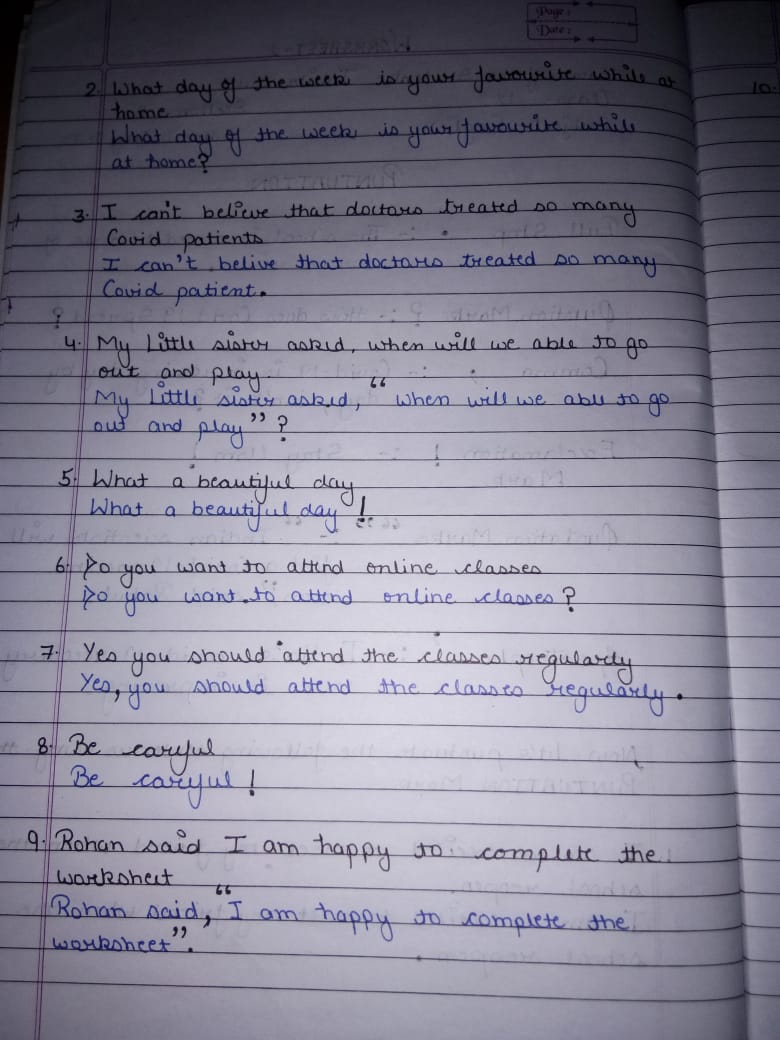 Page :
Date :
2. What day of the week is your favourite while at
home
What day of the week is your favourite while
at home?
3. I can't believe that doctors treated so many
Covid patients
I can't belive that doctors treated so many
Covid patient.
4. My little sister asked, when will we able to go
out and play
My little sister asked, “when will we able to go
out and play” ?
5. What a beautiful day
What a beautiful day !
6. Do you want to attend online classes
Do you want to attend online classes ?
7. Yes you should attend the classes regularly
Yes, you should attend the classes regularly.
8. Be careful
Be careful !
9. Rohan said I am happy to complete the
worksheet
Rohan said, “I am happy to complete the
worksheet”.
10.